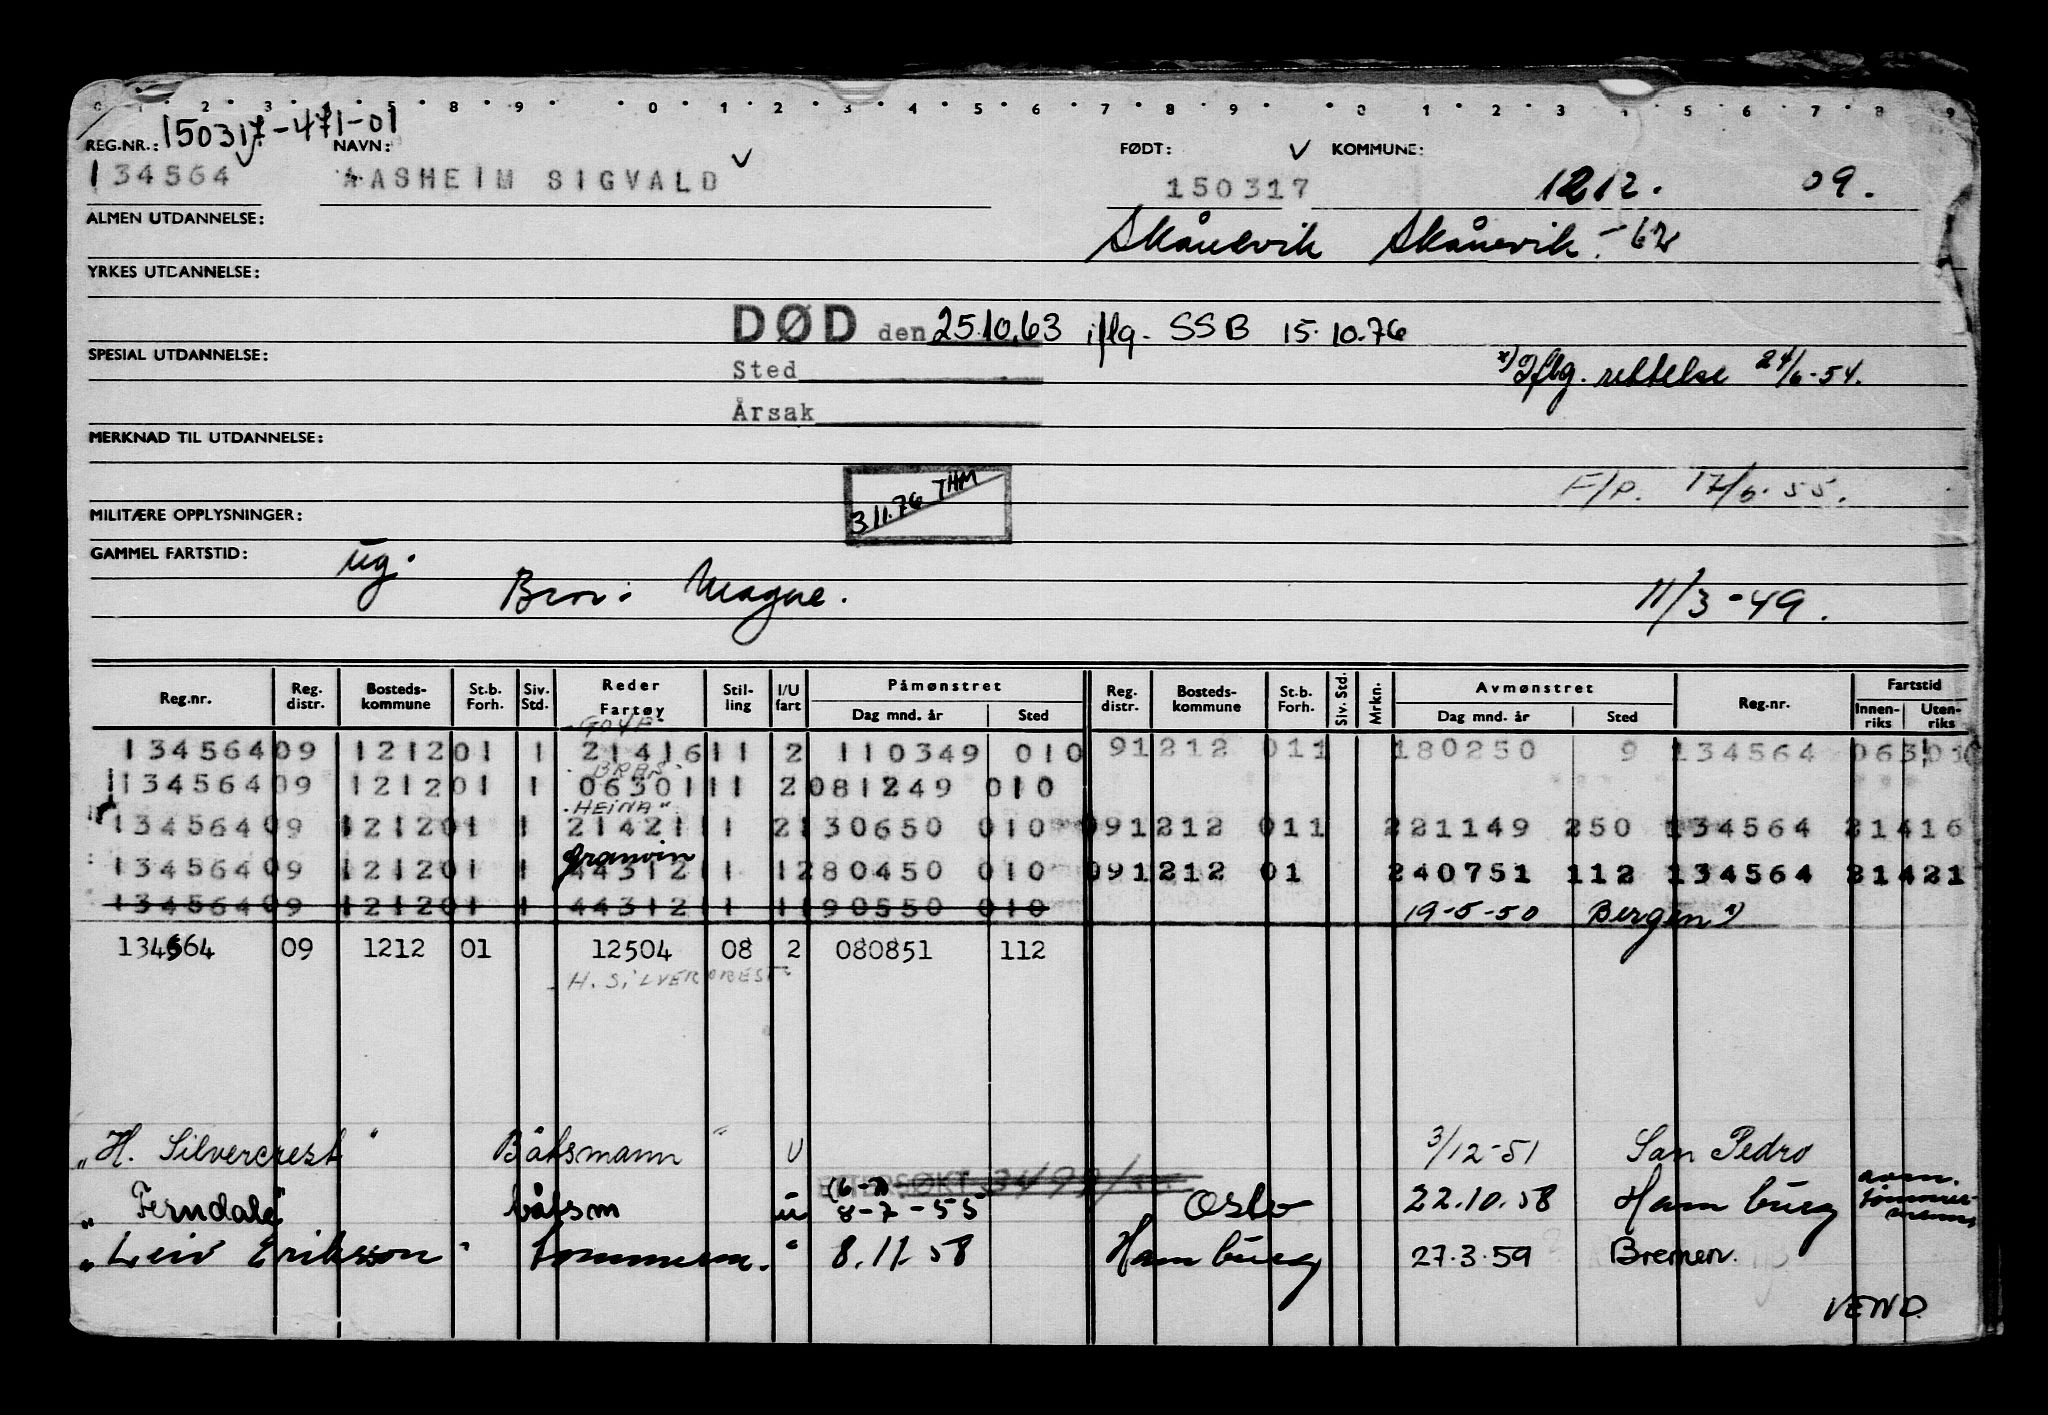 0 · 1 · 2 · 3 · 4 · 5 · 8 · 9 · · 0 · 1 · 2 · 3 · 4 · 5 · 6 · 7 · 8 · 9 · · 0 · 1 · 2 · 3 · 4 · 5 · 6 · 7 · 8 · 9
REG.NR.: 150317-471-01 NAVN: FØDT: KOMMUNE:
134564 AASHEIM SIGVALD 150317 1212. 09.
ALMEN UTDANNELSE: Skånevik Skånevik - 62
YRKES UTDANNELSE:
DØD den 25.10.63 iflg. SSB 15.10.76
SPESIAL UTDANNELSE: Sted x) Iflg. rettelse 24/6-54.
Årsak
MERKNAD TIL UTDANNELSE:
3.11.76 THM F/p. 17/6.55.
MILITÆRE OPPLYSNINGER:
GAMMEL FARTSTID: ug.
Bror: Magne. 11/3-49.
Reg.nr. Reg. distr. Bosteds-kommune St.b. Forh. Siv. Std. Reder Fartøy Stil-ling I/U fart Påmønstret Dag mnd. år Sted Reg. distr. Bosteds-kommune St.b. Forh. Siv. Std. Mrkn. Avmønstret Dag mnd. år Sted Reg.nr. Fartstid Innen-riks Uten-riks
134564 09 1212 01 1 21416 11 2 110349 010 91212 011 180250 9 134564
BRAS
134564 09 1212 01 1 06301 11 2 081249 010
"HEINA"
134564 09 1212 01 1 21421 11 2 130650 010 091212 011 221149 250 134564 21416
Granvin
134564 09 1212 01 1 44312 11 1 280450 010 091212 01 240751 112 134564 21421
134564 09 1212 01 1 44312 11 1 190550 010 19-5-50 Bergen x)
134564 09 1212 01 12504 08 2 080851 112
H. SILVERCREST
"H. Silvercrest" Båtsmann " U 3/12-51 San Pedro
ETTERSØKT
"Ferndale" båtsm u (6-7) 8-7-55 Oslo 22.10.58 Hamburg avm. tømmermann
"Leiv Eriksson" tømmerm. " 8.11.58 Hamburg 27.3.59 Bremen.
VEND.